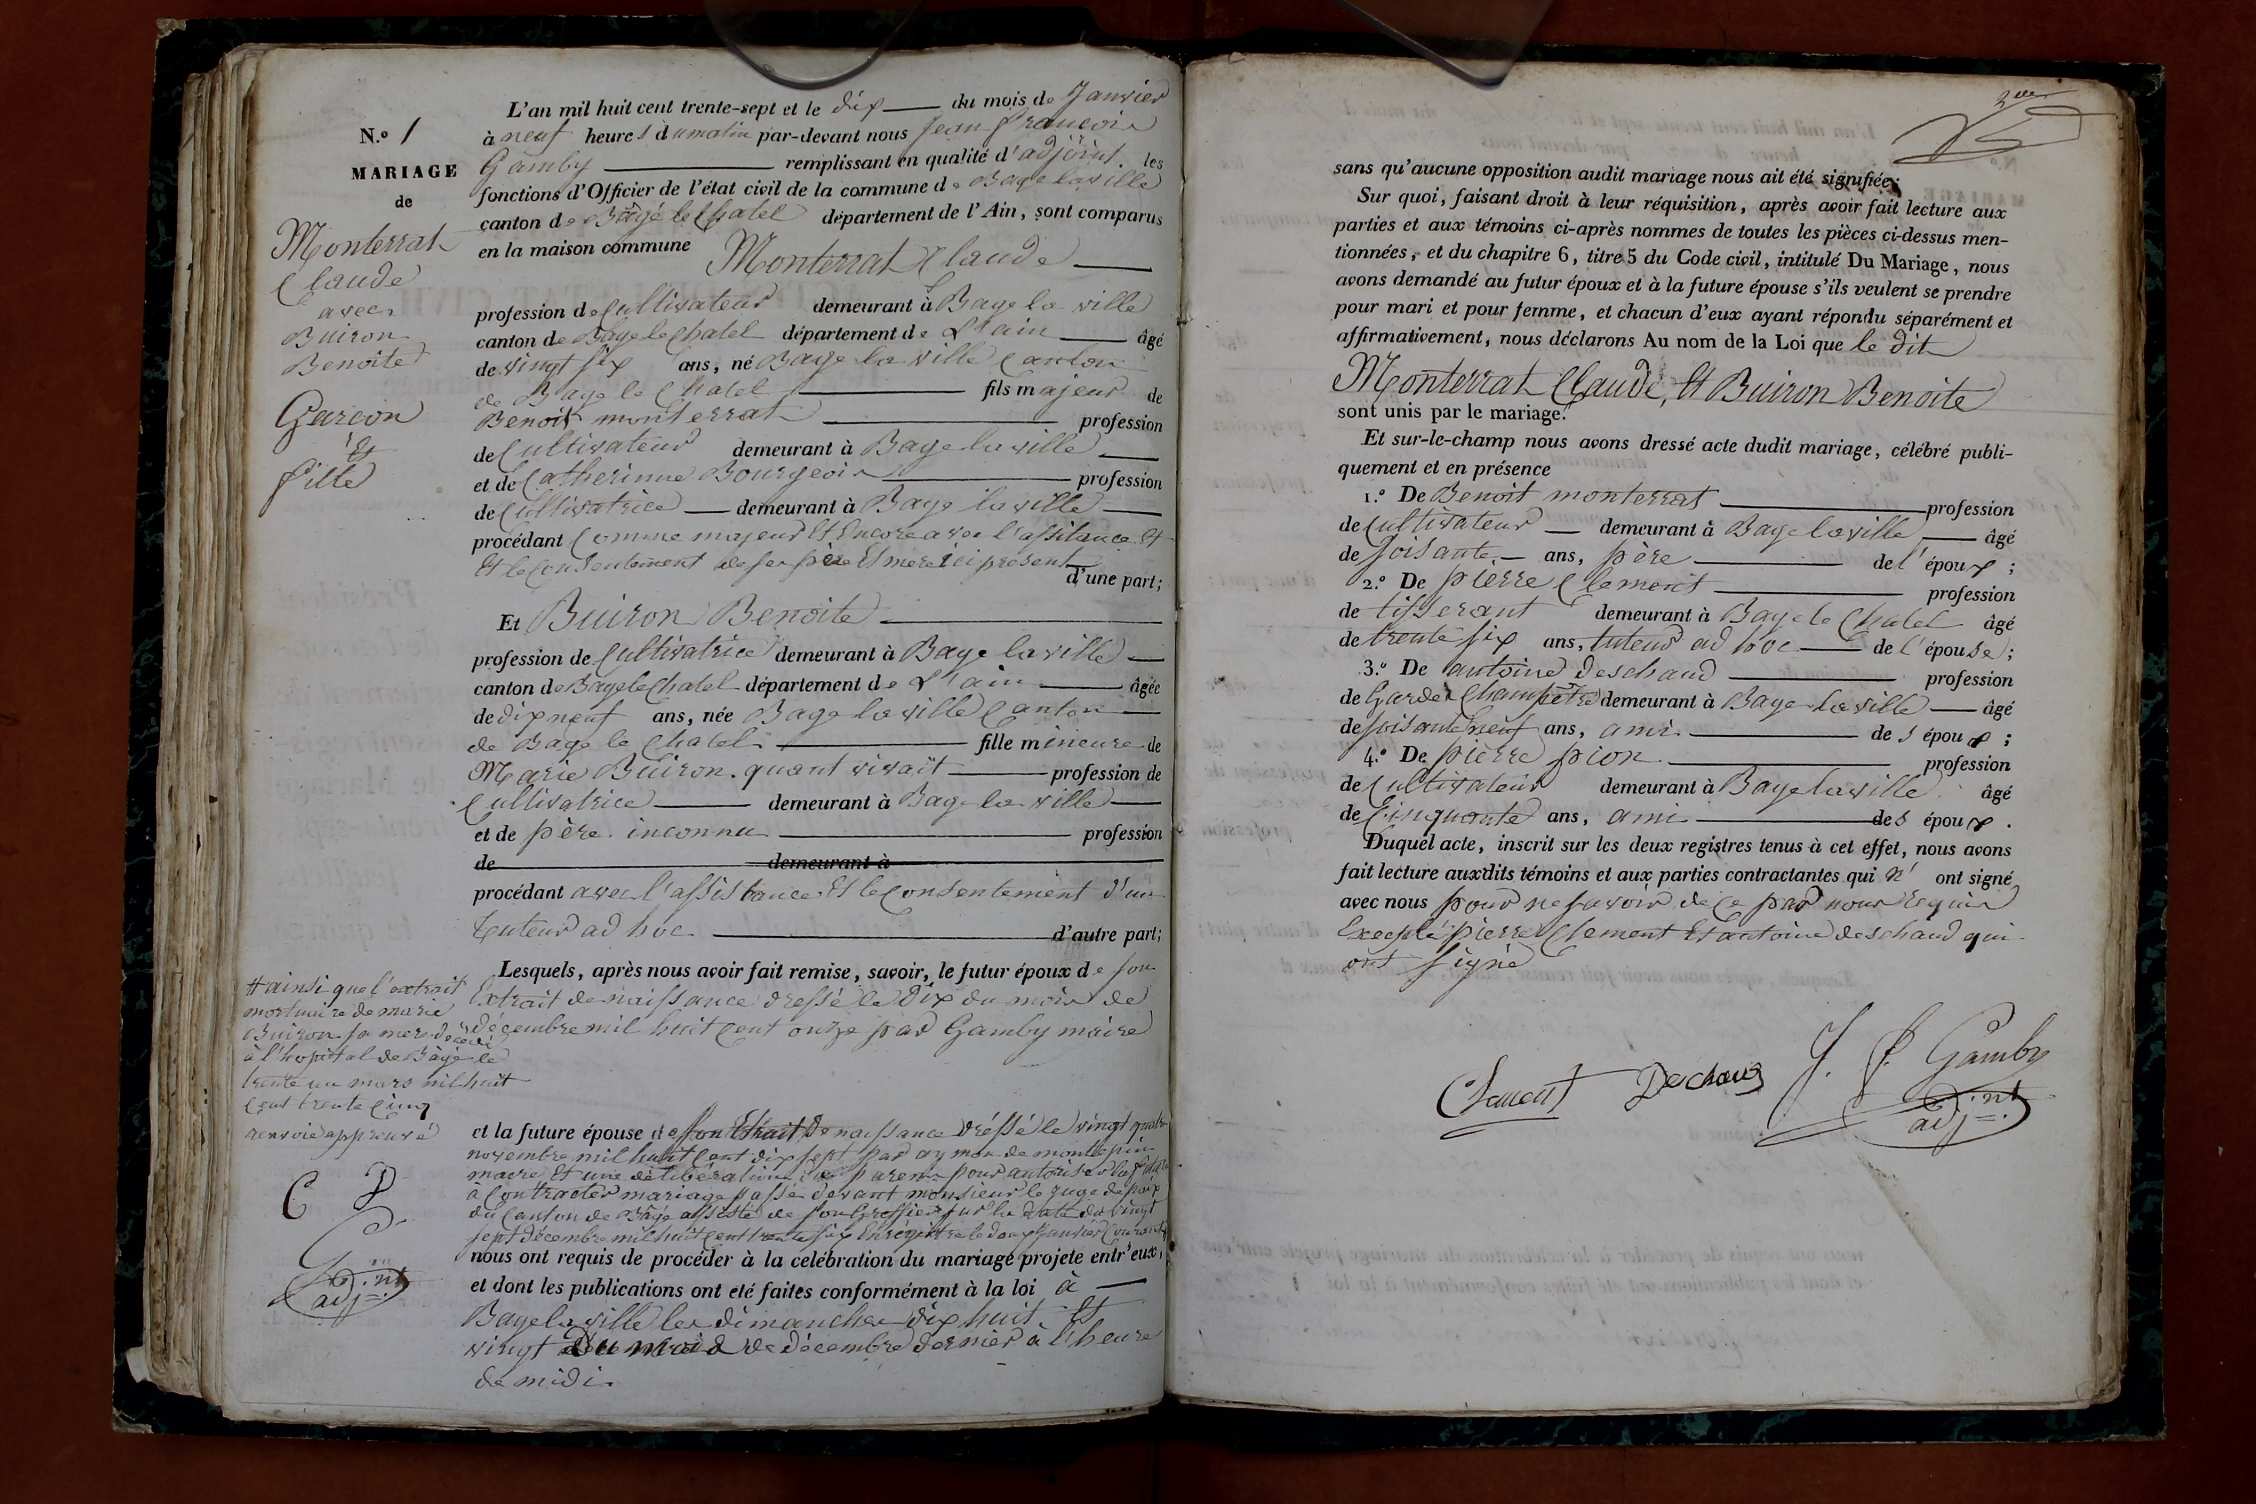 N.º 1
MARIAGE
de
Monterrat
Claude
avec
Buiron
Benoite
Garcon
Et
fille
L'an mil huit cent trente-sept et le dix du mois de Janvier
à neuf heures du matin par-devant nous Jean françois
Gamby remplissant en qualité d'adjoint. les
fonctions d'Officier de l'état civil de la commune de Bage la ville
canton de Bâgé le Chatel département de l'Ain, sont comparus
en la maison commune Monterrat Claude
profession de Cultivateur demeurant à Bage la ville
canton de Bage le Chatel département de L'ain âgé
de vingt six ans, né Bage la ville Canton
de Bage le Chatel fils majeur de
Benoit monterrat profession
de Cultivateur demeurant à Bage la ville
et de Catherinne Bourgeois profession
de Cultivatrice demeurant à Bage la ville
procédant Comme majeur Et Encore avec l'assitance Et
Et le Consentement de ses père Et mere ici present
d'une part;
Et Buiron Benoite
profession de Cultivatrice demeurant à Bage la ville
canton de Bage le Chatel département de L'ain âgée
de dix neuf ans, née Bage la ville Canton
de Bage le Chatel fille mineure de
Marie Buiron. quant vivait profession de
Cultivatrice demeurant à Bage la ville
et de père inconnu profession
de demeurant à
procédant avec l'assistance Et le Consentement d'un
tuteur ad hoc d'autre part;
Lesquels, après nous avoir fait remise, savoir, le futur époux de son
Extrait de naissance dressé le dix du mois de
décembre mil huit Cent onze par Gamby maire
# ainsi que l'extrait
mortuaire de marie
Buiron sa mere décédé
à l'hopital de Bâgé le
trente un mars mil huit
Cent trente Cinq
renvoie approuvé
C D
G
adj.nt
et la future épouse de son Extrait de naissance dréssé le vingt quatre
novembre mil huit Cent dix sept par aymon de montepin
maire Et une délibération des parens pour autoriser la
à Contracter mariage passé devant monsieur le juge de paix
du Canton de Bâgé assisté de son Greffier sur la date du vingt
sept décembre mil huit Cent trente six Enrégistre le doux Janvier Courant
nous ont requis de procéder à la célébration du mariage projete entr'eux,
et dont les publications ont été faites conformément à la loi à
Bage la ville les dimanches dix huit Et
vingt du mois de décembre dernier à l'heure
de midi.
sans qu'aucune opposition audit mariage nous ait été signifiée;
Sur quoi, faisant droit à leur réquisition, après avoir fait lecture aux
parties et aux témoins ci-après nommes de toutes les pièces ci-dessus men-
tionnées, et du chapitre 6, titre 5 du Code civil, intitulé Du Mariage, nous
avons demandé au futur époux et à la future épouse s'ils veulent se prendre
pour mari et pour femme, et chacun d'eux ayant répondu séparément et
affirmativement, nous déclarons Au nom de la Loi que le dit
Monterrat Claude, Et Buiron Benoite
sont unis par le mariage.
Et sur-le-champ nous avons dressé acte dudit mariage, célébré publi-
quement et en présence
1.º De Benoit monterrat profession
de Cultivateur demeurant à Bage la ville âgé
de soisante ans, père de l'époux;
2.º De pierre Clement profession
de tisserant demeurant à Bage le Chatel âgé
de trente six ans, tuteur ad hoc de l'épouse;
3.º De antoine deschaud profession
de Garde Champêtre demeurant à Bage la ville âgé
de soisante neuf ans, ami des époux;
4.º De pierre pion profession
de Cultivateur demeurant à Bage la ville âgé
de Cinquante ans, ami des époux.
Duquel acte, inscrit sur les deux registres tenus à cet effet, nous avons
fait lecture auxdits témoins et aux parties contractantes qui n' ont signé
avec nous pour ne savoir de ce par nous requis
Excepté pierre Clement Et antoine deschaud qui
ont signé
Clement Dechaud J. f. Gamby
adj.nt